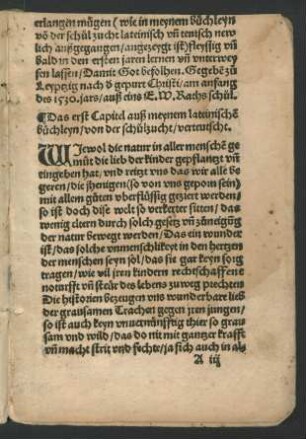 erlangen mügen (wie in meynem büchleyn
vō der schůl zucht lateinisch vn̄ teutsch new
lich außgegangen/angezeygt ist) fleyssig vn̄
bald in den ersten jaren lernen vn̄ vnterwey
sen lassen/Damit Got befolhen. Gegebē zů
Leypzig nach d gepurt Christi/am anfang
des 1530. jars/auß eins E. W. Rachs schůl.
¶Das erst Capitel auß meynem lateinischē
büchleyn/von der schůlzucht/verteutscht.
WIewol die natur in aller menschē ge
müt die lieb der kinder gepflantzt vn̄
eingeben hat/vnd reitzt vns das wir alle be
geren/die jhenigen (so von vns geporn sein)
mit allem gůten vberflüssig geziert werden/
so ist doch dise welt so verkerter sitten/das
wenig eltern durch solch gesetz vn̄ zůneigūg
der natur bewegt werden/Das ein wunder
ist/das solche vnmenschlikeyt in den hertzen
der menschen seyn sol/das sie gar keyn sorg
tragen/wie vil jren kindern rechtschaffen e
noturfft vn̄ steür des lebens zu weg prechten
Die historien bezeugen vns wunderbare lieb
der grausamen Trachen gegen jren jungen/
so ist auch keyn vnuernünfftig thier so grau
sam vnd wild/das do nit mit gantzer krafft
vn̄ macht streit vnd fechte/ja sich auch in als
A iij